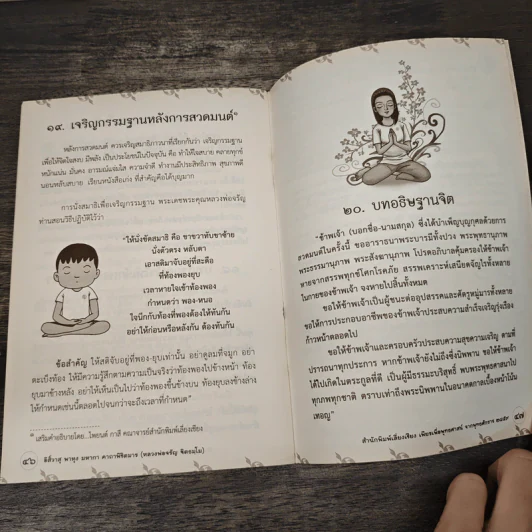 ๑๙. เจริญกรรมฐานหลังการสวดมนต์*
หลังการสวดมนต์ ควรเจริญสมาธิภาวนาที่เรียกกันว่า เจริญกรรมฐาน
เพื่อให้จิตใจสงบ มีพลัง เป็นประโยชน์ในปัจจุบัน คือ ทำให้ใจสบาย คลายทุกข์
หนักแน่น มั่นคง อารมณ์แจ่มใส ความจำดี ทำงานมีประสิทธิภาพ สุขภาพดี
นอนหลับสบาย เรียนหนังสือเก่ง ที่สำคัญคือได้บุญมาก
การนั่งสมาธิเพื่อเจริญกรรมฐาน พระเดชพระคุณหลวงพ่อจรัญ
ท่านสอนวิธีปฏิบัติไว้ว่า
"ให้นั่งขัดสมาธิ คือ ขาขวาทับขาซ้าย
นั่งตัวตรง หลับตา
เอาสติมาจับอยู่ที่สะดือ
ที่ท้องพองยุบ
เวลาหายใจเข้าท้องพอง
กำหนดว่า พอง-หนอ
ใจนึกกับท้องที่พองต้องให้ทันกัน
อย่าให้ก่อนหรือหลังกัน ต้องทันกัน
ข้อสำคัญ ให้สติจับอยู่ที่พอง-ยุบเท่านั้น อย่าดูลมที่จมูก อย่า
ตะเบ็งท้อง ให้มีความรู้สึกตามความเป็นจริงว่าท้องพองไปข้างหน้า ท้อง
ยุบมาข้างหลัง อย่าให้เห็นเป็นไปว่าท้องพองขึ้นข้างบน ท้องยุบลงข้างล่าง
ให้กำหนดเช่นนี้ตลอดไปจนกว่าจะถึงเวลาที่กำหนด"
* เสริมคำอธิบายโดย...ไพยนต์ กาสี คณาจารย์สำนักพิมพ์เลี่ยงเชียง
๔๖ อิติปิโส พาหุง มหากา คาถาพิชิตมาร (หลวงพ่อจรัญ ฐิตธมฺโม)
๒๐. บทอธิษฐานจิต
"ข้าพเจ้า (บอกชื่อ-นามสกุล) ซึ่งได้บำเพ็ญบุญกุศลด้วยการ
สวดมนต์ในครั้งนี้ ขออาราธนาพระบารมีทั้งปวง พระพุทธานุภาพ
พระธรรมานุภาพ พระสังฆานุภาพ โปรดอภิบาลคุ้มครองให้ข้าพเจ้า
หายจากสรรพทุกข์โศกโรคภัย สรรพเคราะห์เสนียดจัญไรทั้งหลาย
ในกายของข้าพเจ้า จงหายไปสิ้นทั้งหมด
ขอให้ข้าพเจ้าเป็นผู้ชนะต่ออุปสรรคและศัตรูหมู่มารทั้งหลาย
ขอให้การประกอบอาชีพของข้าพเจ้าประสบความสำเร็จเจริญรุ่งเรือง
ก้าวหน้าตลอดไป
ขอให้ข้าพเจ้าและครอบครัวประสบความสุขความเจริญ ตามที่
ปรารถนาทุกประการ หากข้าพเจ้ายังไม่ถึงซึ่งนิพพาน ขอให้ข้าพเจ้า
ได้ไปเกิดในตระกูลที่ดี เป็นผู้มีธรรมะบริสุทธิ์ พบพระพุทธศาสนาไป
ทุกภพทุกชาติ ตราบเท่าถึงพระนิพพานในอนาคตกาลเบื้องหน้าโน้น
เทอญ"
สำนักพิมพ์เลี่ยงเชียง เพียรเพื่อพุทธศาสน์ ๔๗